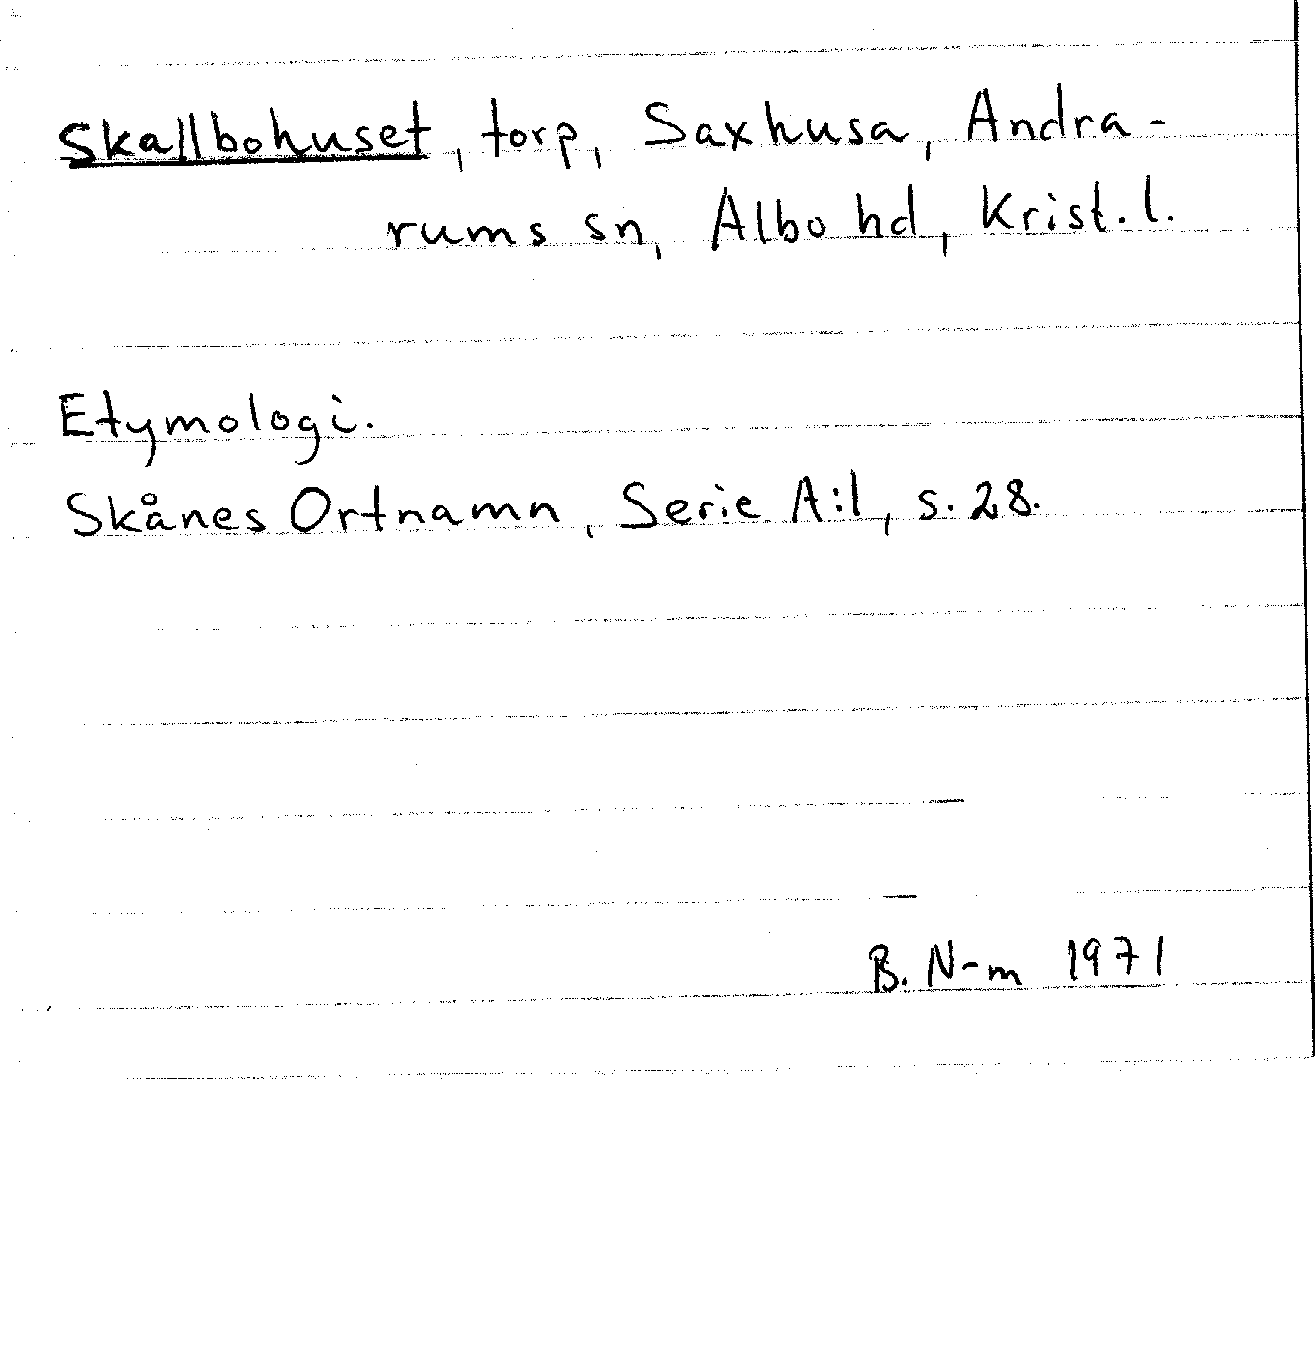 Skallbohuset, torp, Saxhusa, Andra-
rums sn, Albo hd, Krist. l.
Etymologi.
Skånes Ortnamn, Serie A:1, s. 28.
B. N-m 1971